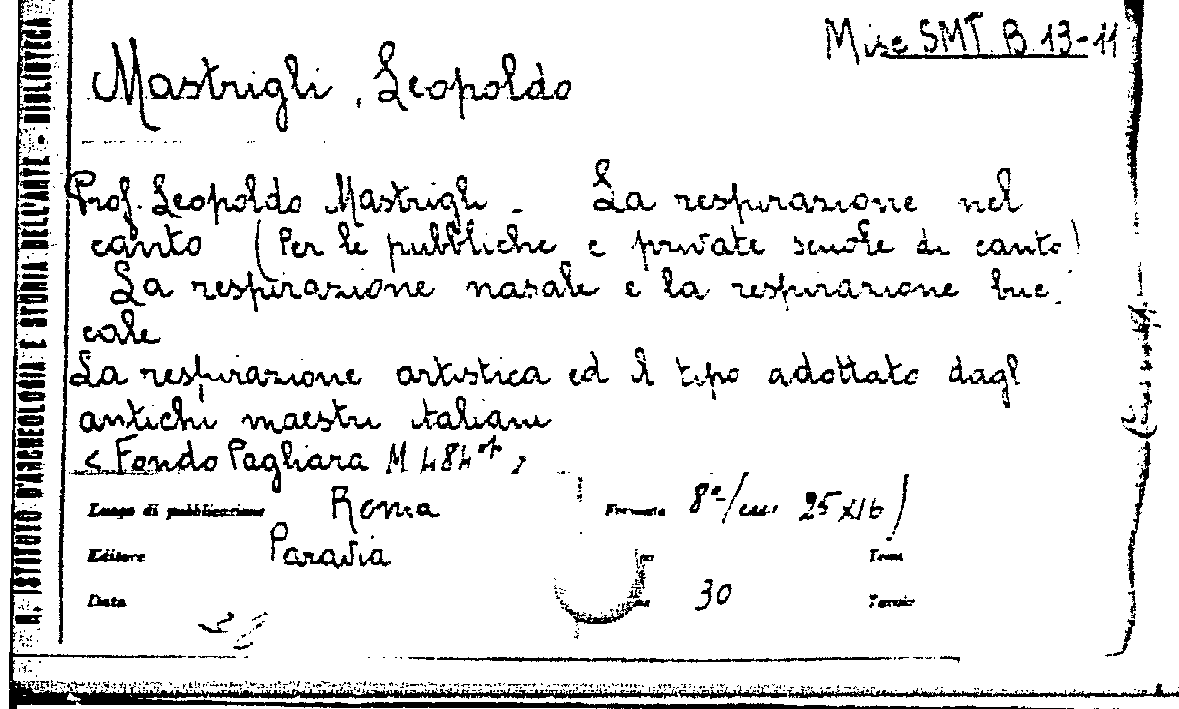 Misc SMT B 13-11
Mastrigli, Leopoldo
Prof. Leopoldo Mastrigli - La respirazione nel
canto (Per le pubbliche e private scuole di canto)
La respirazione nasale e la respirazione buc-
cale
La respirazione artistica ed il tipo adottato dagl
antichi maestri italiani
< Fondo Pagliara M 484 >
Luogo di pubblicazione Roma Formato 8°/cm. 25x16)
Editore Paravia Tomi
Data 30 Tavole
R. ISTITUTO D'ARCHEOLOGIA E STORIA DELL'ARTE - BIBLIOTECA